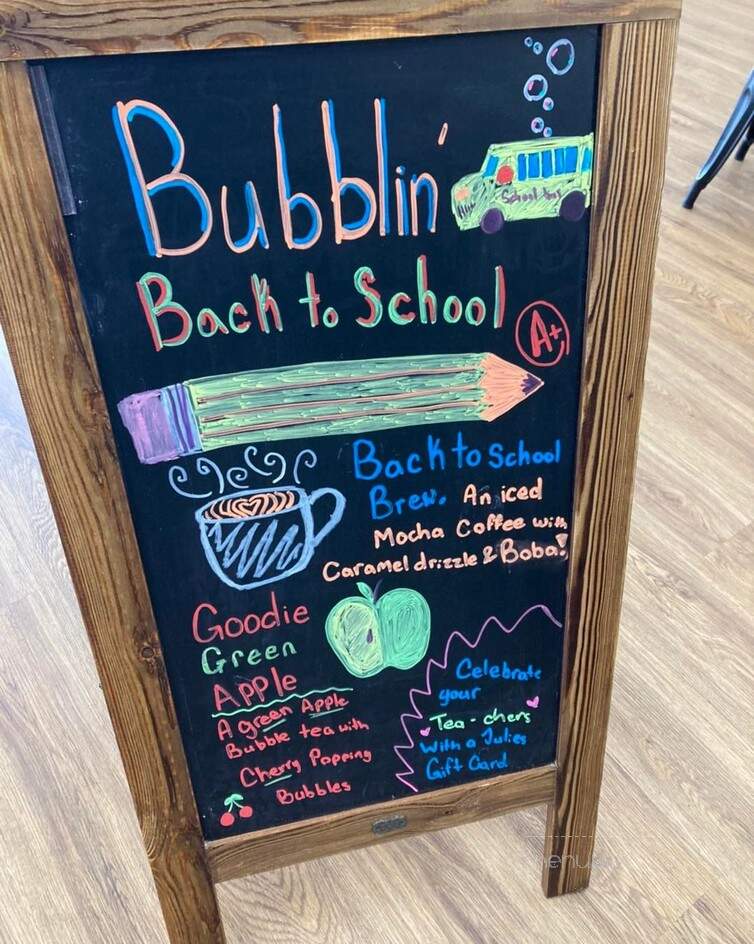 Bubblin'
School bus
Back to School
A+
Back to School
Brew. An iced
Mocha Coffee with
Caramel drizzle & Boba!
Goodie
Green
Apple
A green Apple
Bubble tea with
Cherry Popping
Bubbles
Celebrate
your
Tea-chers
With a Julies
Gift Card
menu